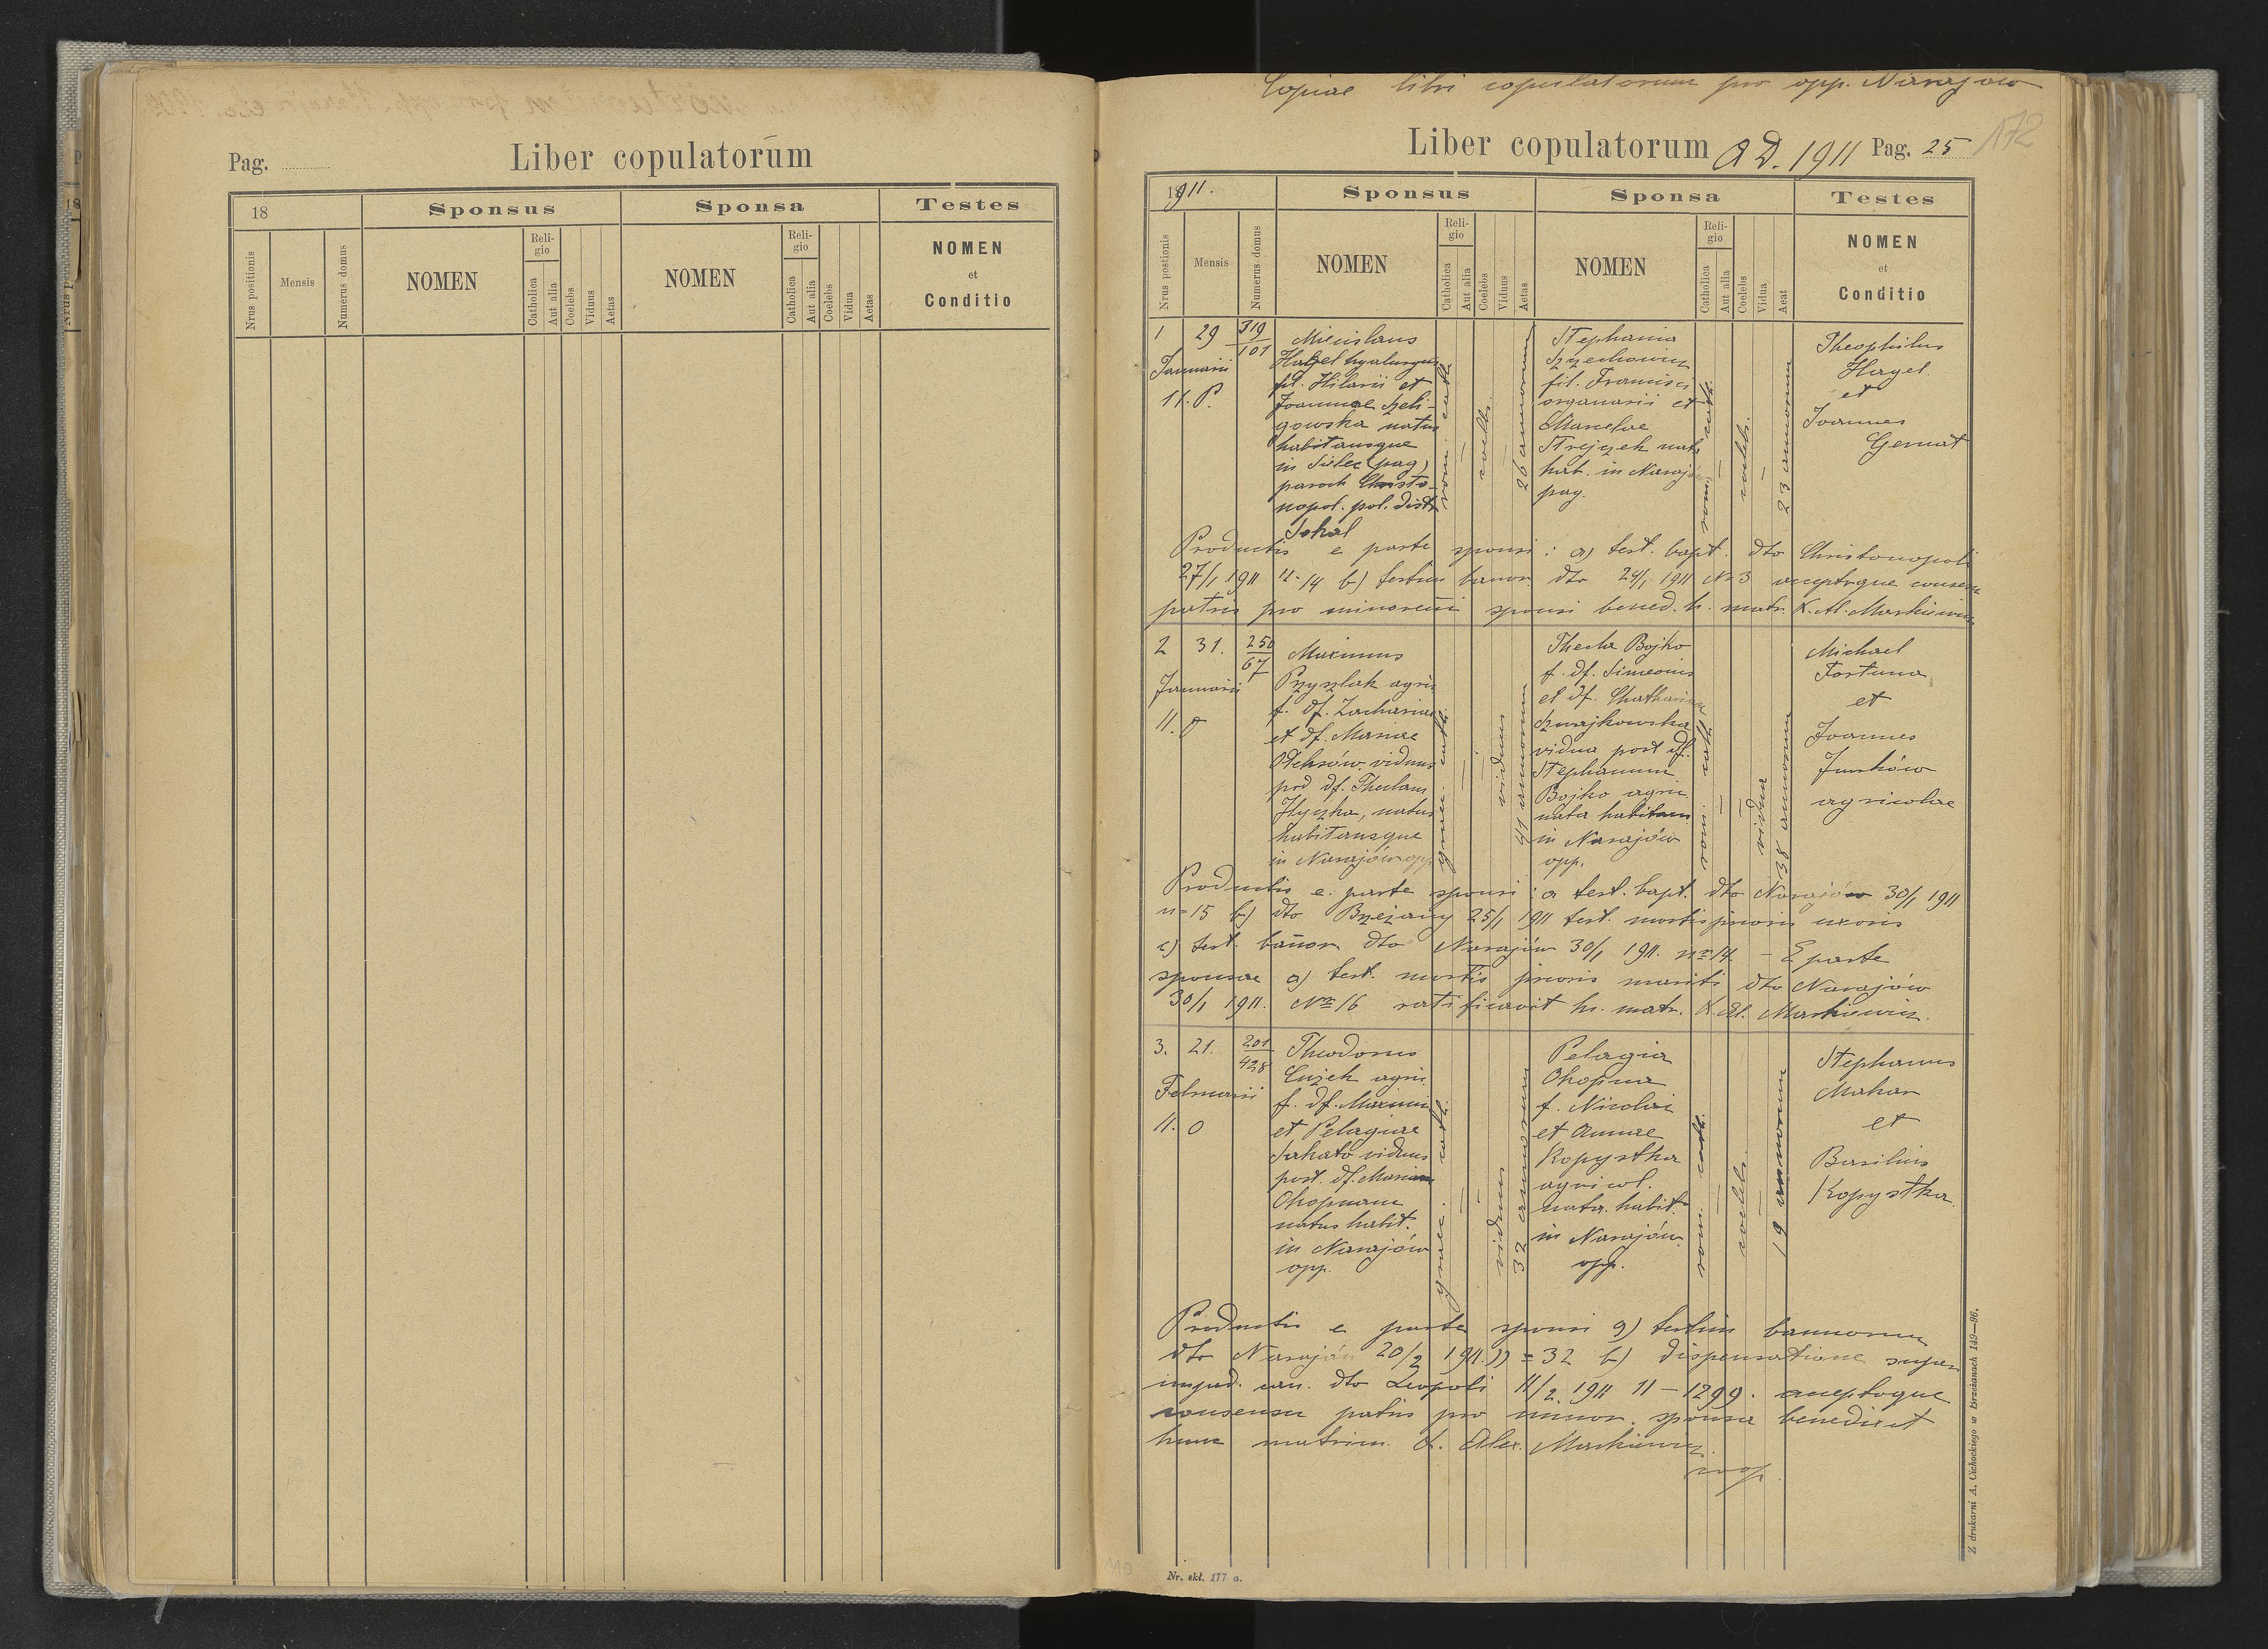 Pag.
Liber copulatorum
18
Sponsus
Sponsa
Testes
Nrus positionis
Mensis
Numerus domus
NOMEN
Religio
Catholica
Aut alia
Coelebs
Viduus
Aetas
NOMEN
Religio
Catholica
Aut alia
Coelebs
Vidua
Aetas
NOMEN
et
Conditio
Copiae libri copulatorum pro opp. Narajów
Liber copulatorum A D. 1911 Pag. 25
172
1911.
Sponsus
Sponsa
Testes
Nrus postionis
Mensis
Numerus domus
NOMEN
Religio
Catholica
Aut alia
Coelebs
Viduus
Aetas
NOMEN
Religio
Catholica
Aut alia
Coelebs
Vidua
Aeat
NOMEN
et
Conditio
1
29
Januarii
11. P.
319
101
Miecislaus
Hagel
fil. Hilarii et
Joannae Szeli-
gowska natus
habitansque
in Sielec (pag)
paroch Christo-
nopol. pol. distr
Sokal
rom. cath.
coelebs.
26 annorum
Stephania
Szzechowicz
fil. Francisci
organarii et
Marielae
Strejzek nata
hab. in Narajów
pag.
rom. cath.
coelebs.
23 annorum
Theophilus
Hagel.
et
Joannes
Gernat
Productis e parte sponsi: a) test. bapt. dto Christonopoli
27/1 1911 n. 14 b) testim banon. dto 24/1 1911 No 3 acceptoque consensu
patris pro minorenni sponsi bened. h. matr. X. Al. Markiewicz
2
31.
Januarii
11. O
250
67
Maximus
Przyszlak agric.
f. df. Zachariae
et df. Mariae
Oleksów viduus
post df. Theclam
Hyczka, natus
habitansque
in Narajów opp.
graec. cath.
viduus
41 annorum
Thecla Bojko
f. df. Simeonis
et df. Chatharinae
Szwajkowska
vidua post df.
Stephanum
Bojko agric
nata habitans
in Narajów
opp.
rom. cath
vidua
38 annorum
Michael
Fortuna
et
Joannes
Junków
agricolae
Productis e. parte sponsi: a test. bapt. dto Narajów 30/1 1911
n=15 b) dto Brzeżany 25/1 1911 test. mortis prioris uxoris
c) test. banon dto Narajów 30/1 1911. no 14. - E parte
sponsae a) test. mortis prioris mariti dto Narajów
30/1 1911. No 16 ratificavit h. matr. X. Al. Markiewicz.
3.
21.
Februarii
11. O
201
428
Theodorus
Cużek agric.
f. df. Maximi
et Pelagiae
Sakato viduus
post. df. Mariam
Okopnam
natus habit.
in Narajów
opp.
graec. cath.
viduus
32 annorum
Pelagia
Okopna
f. Nicolai
et Annae
Kopystka
agricol.
nata. habit.
in Narajów
opp.
rom. cath.
coelebs.
19 annorum
Stephanus
Makar
et
Basilius
Kopystka
Productis e parte sponsi a) testim bannorum
dto Narajów 20/2 1911. n = 32 b) dispensatione super
imped. can. dto Leopoli 11/2. 1911 n - 1299. acceptoque
consensu patris pro minor. sponsa benedixit
hunc matrim. X. Alex. Markiewicz.
Z drukarni A. Cichockiego w Brzeżanach 149—96.
Nr. skł. 177 a.
110